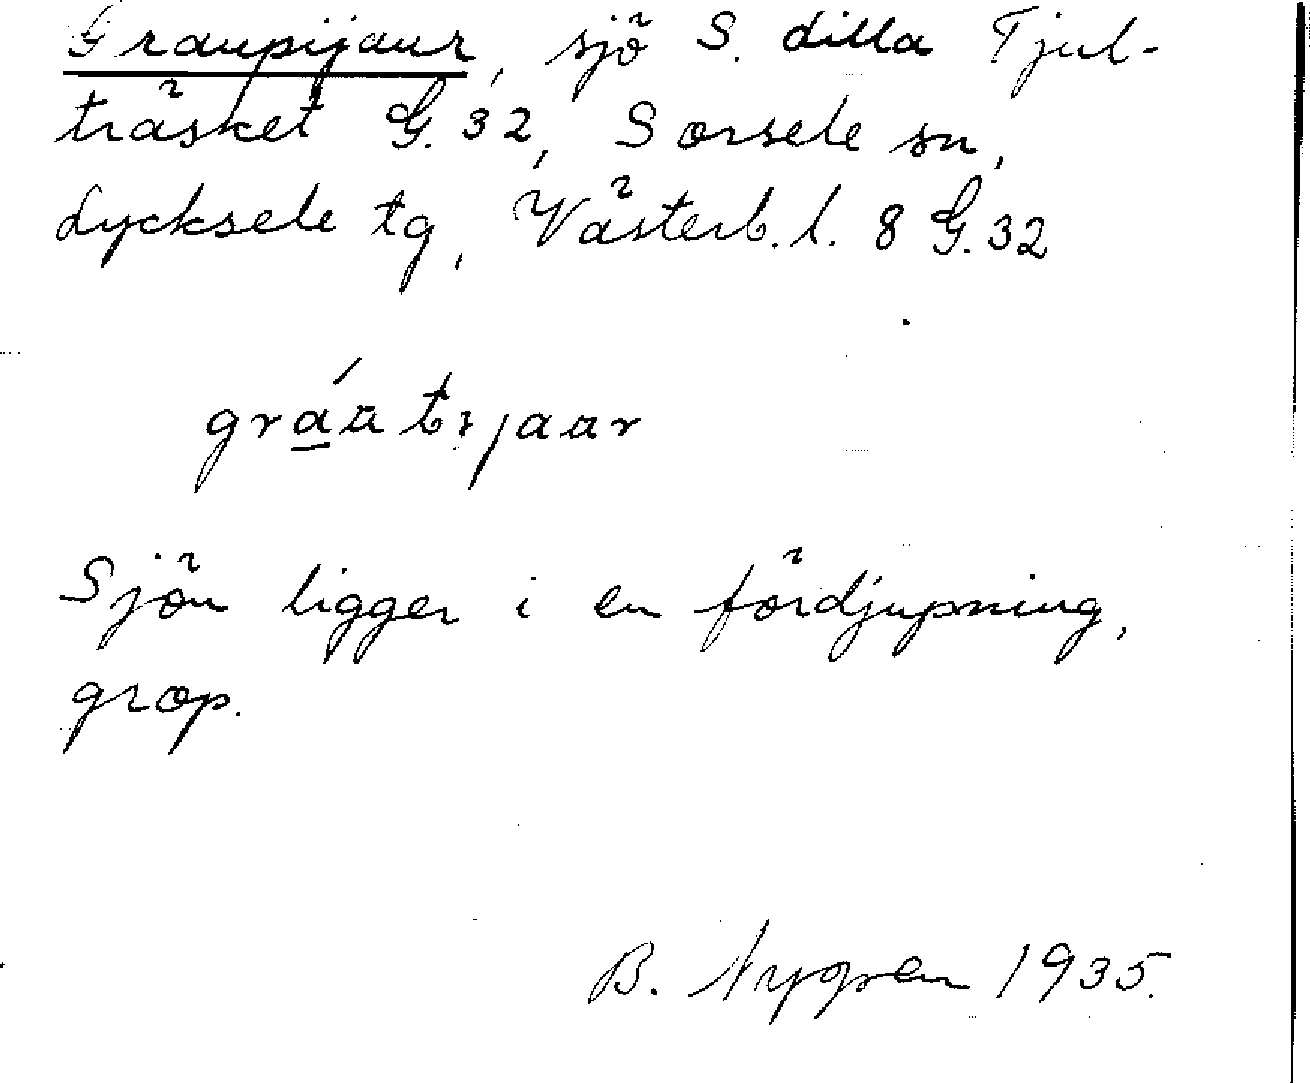 Graupijaur, sjö S. Lilla Tjul-
träsket G. 32, Sorsele sn,
Lycksele tg, Västerb. l. 8 G. 32
Sjön ligger i en fördjupning,
grop.
B. Nygren 1935.